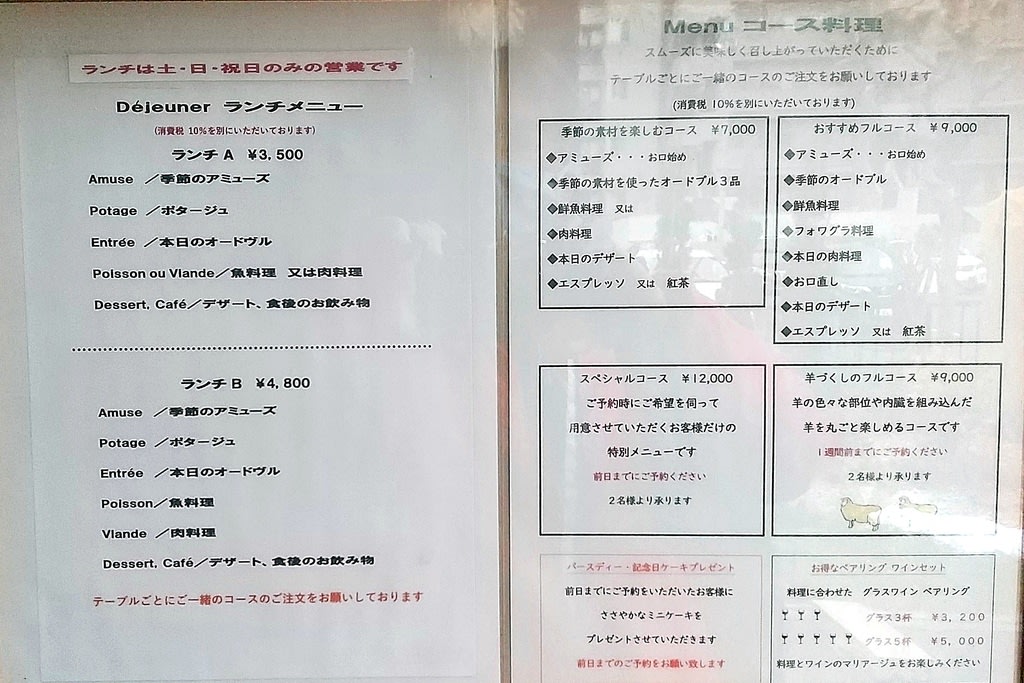 ランチは土・日・祝日のみの営業です
Déjeuner ランチメニュー
(消費税 10%を別にいただいております)
ランチA ¥3,500
Amuse ／季節のアミューズ
Potage ／ポタージュ
Entrée ／本日のオードヴル
Poisson ou Viande／魚料理 又は肉料理
Dessert, Café／デザート、食後のお飲み物
ランチB ¥4,800
Amuse ／季節のアミューズ
Potage ／ポタージュ
Entrée ／本日のオードヴル
Poisson／魚料理
Viande ／肉料理
Dessert, Café／デザート、食後のお飲み物
テーブルごとにご一緒のコースのご注文をお願しております
Menu コース料理
スムーズに美味しく召し上がっていただくために
テーブルごとにご一緒のコースのご注文をお願しております
(消費税 10%を別にいただいております)
季節の素材を楽しむコース ¥7,000
◆アミューズ・・・お口始め
◆季節の素材を使ったオードブル3品
◆鮮魚料理 又は
◆肉料理
◆本日のデザート
◆エスプレッソ 又は 紅茶
おすすめフルコース ¥9,000
◆アミューズ・・・お口始め
◆季節のオードブル
◆鮮魚料理
◆フォワグラ料理
◆本日の肉料理
◆お口直し
◆本日のデザート
◆エスプレッソ 又は 紅茶
スペシャルコース ¥12,000
ご予約時にご希望を伺って
用意させていただくお客様だけの
特別メニューです
前日までにご予約ください
2名様より承ります
羊づくしのフルコース ¥9,000
羊の色々な部位や内臓を組み込んだ
羊を丸ごと楽しめるコースです
1週間前までにご予約ください
2名様より承ります
バースディー・記念日ケーキプレゼント
前日までにご予約をいただいたお客様に
ささやかなミニケーキを
プレゼントさせていただきます
前日までのご予約をお願い致します
お得なペアリング ワインセット
料理に合わせた グラスワイン ペアリング
グラス3杯 ¥3,200
グラス5杯 ¥5,000
料理とワインのマリアージュをお楽しみください